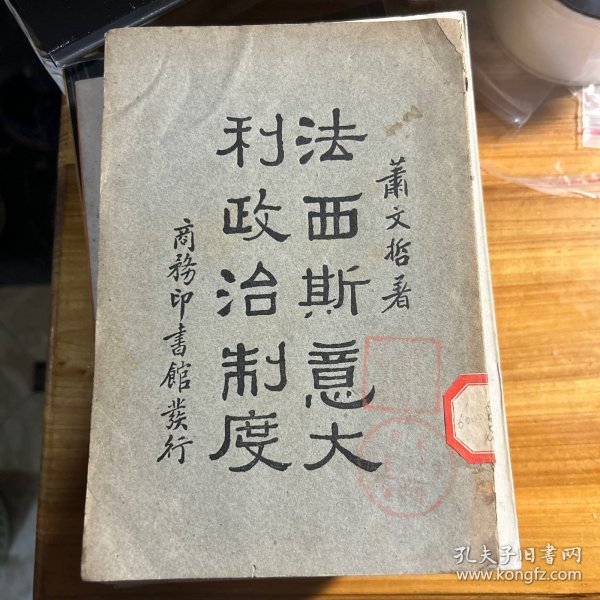 蕭文哲著
法西斯意大
利政治制度
商務印書館發行
孔夫子旧書网
www.kongfz.com